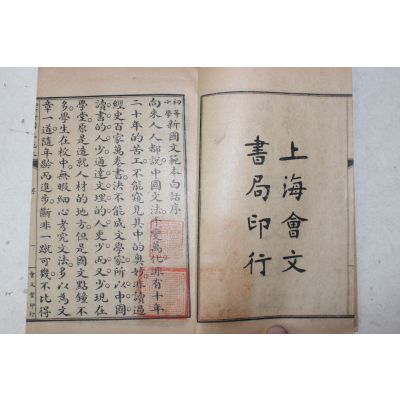 上海會文
書局印行
初等小學新國文範本白話序
向來人人都說中國文法千變萬化非有十年
二十年的苦工不能窺見其中的奧妙非讀過
經史百家萬卷書決不能成文學家所以中國
讀書的人少通達文理的人更少而又少現在
學堂原是造就人材的地方但是國文點鐘不
多學生在校中無暇細心考究文法多以為文
章一道隨年齡而進步斷非一蹴可幾不比得
序
一
會文堂印行